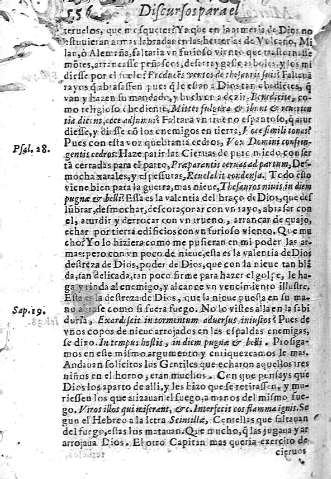 556 Discursos para el
teruelos, que mosquetes: Ya que en la armeria de Dios no
estuuieran armas labradas en las herrerias de Vulcano, Mi
lan, ò Alemaña, faltaria vn furioso viento que trastornasse
môtes, arrancasse peñascos,
diesse por el suelo: Producês ventos de thesauris suis: Faltará
rayos
van y hazen su mandado, y
religioso
tia dicũt, ecce adsumus: Faltara vn trueno espantoso, q̃
diesse, y diesse cõ los enemigos en tierra, Vox
Pues con esta voz quebranta cedros, Vox Domini confrin-
Psal. 28. gentis cedros: Haze parir las Cieruas de puro miedo, con ser
tã cerradas para el parto, Præparantis ceruas ad partum, Des-
mocha xarales, y espessuras, Reuelabit condensa. Todo esso
viene bien para la guerra, mas nieue, Thesauros niuis in diem
pugnæ & belli? Essa es la valentia del braço de Dios, que des
lubrar, desmochar, descoraçonar con vn rayo, abrasar con
el, aturdir y derrocar vn trueno, arrancar de quajo,
echar por tierra edificios con vn furioso viento. Que mu
cho? Yo lo hiziera como me pusieran en mi poder las ar-
mas: pero con vn poco de nieue, essa es la valentia de Dios
destreza de Dios, poder de Dios, que con la nieue tan blã
da, tan delicada, tan poco firme para hazer el golpe, le ha-
ga rinda al enemigo, y alcance vn vencimiento illustre.
Essa es la destreza de Dios, que la nieue puesta en su ma-
Sap. 19. no abrase como si fuera fuego. No lo vistes alla en la sabi
duria, Exardescit in tormentum aduersus iniustos? Pues de
vnos copos de nieue arrojados en las espaldas enemigas,
se dixo. In tempus hostis, in diem pugnæ & belli. Prosiga-
mos en este mismo argumento y enriquezcamos le mas.
Andauan solicitos los Gentiles que echaron aquellos tres
niños en el horno, eran muchos. Cen que pensays que
Dios los aparto de alli, y les hizo que se retirassen, y mu-
riessen los que atizauan el fuego, a manos del mismo fue-
go. Viros illos qui miserant, &c. Interfecit eos flamma ignis. Se
gun el Hebreo a la letra Scintillæ, Centellas que saltauan
del fuego, essas los matauan. Que mucho, q̃ las jugaua y ar
arrojaua Dios. El otro Capitan mas queria exercito de
cieruos